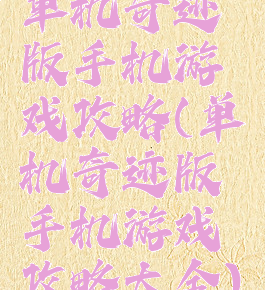 单机奇迹
版手机游
戏攻略(单
机奇迹版
手机游戏
攻略大全)